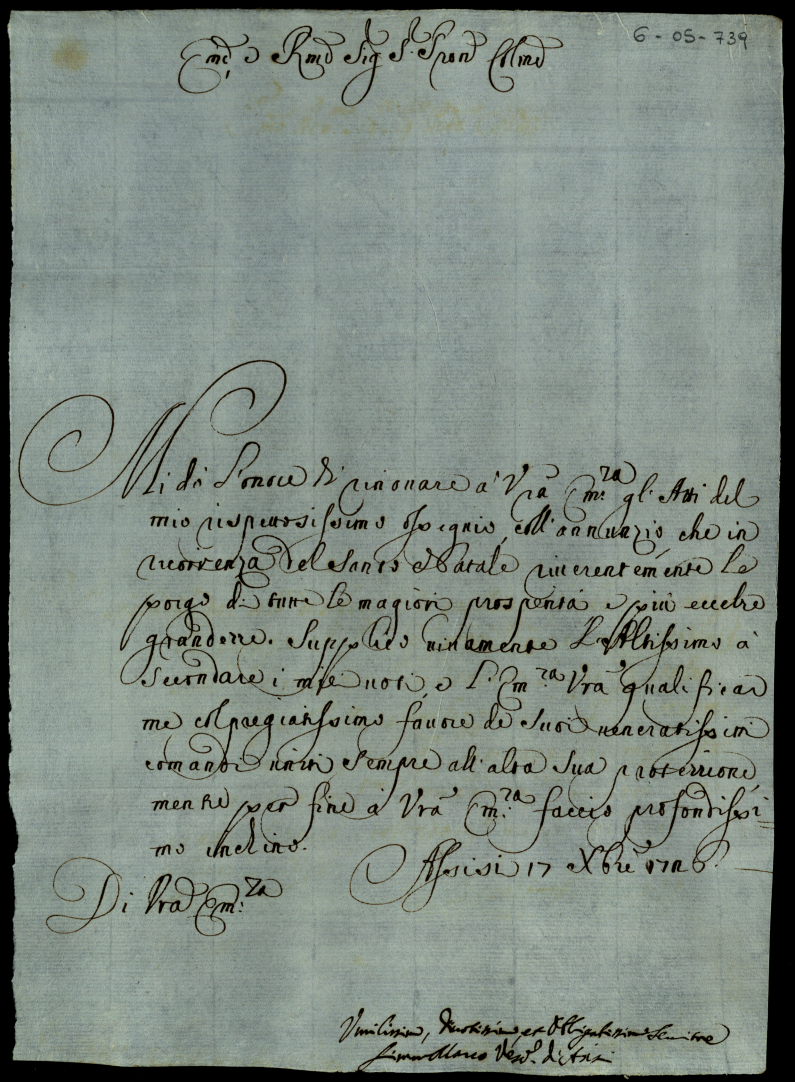 6-05-739
Em.º e Rmo Sig S. Pron Colmo
Mi dò l'onore di rinouare à Vra Em.za gl'Atti del
mio rispettosissimo ossequio, coll'annunzio, che in
ricorrenza del Santo Natale riuerentemente Le
porgo di tutte le magiori prosperità e più eccelse
grandezze. Supplico uiuamente L'Altissimo à
secondare i miei uoti, e l'Em.za Vra qualificar
me col pregiatissimo fauore de suoi ueneratissimi
comandi uniti sempre all'alta sua protezzione,
mentre per fine à Vra Em.za faccio profondissi=
mo inchino.
Assisi 17 Xbre
Di Vra Em.za
Vmilissimo, Diuotissimo, et Obligatissimo Seruitore
Marco Vesc.º di Asisi